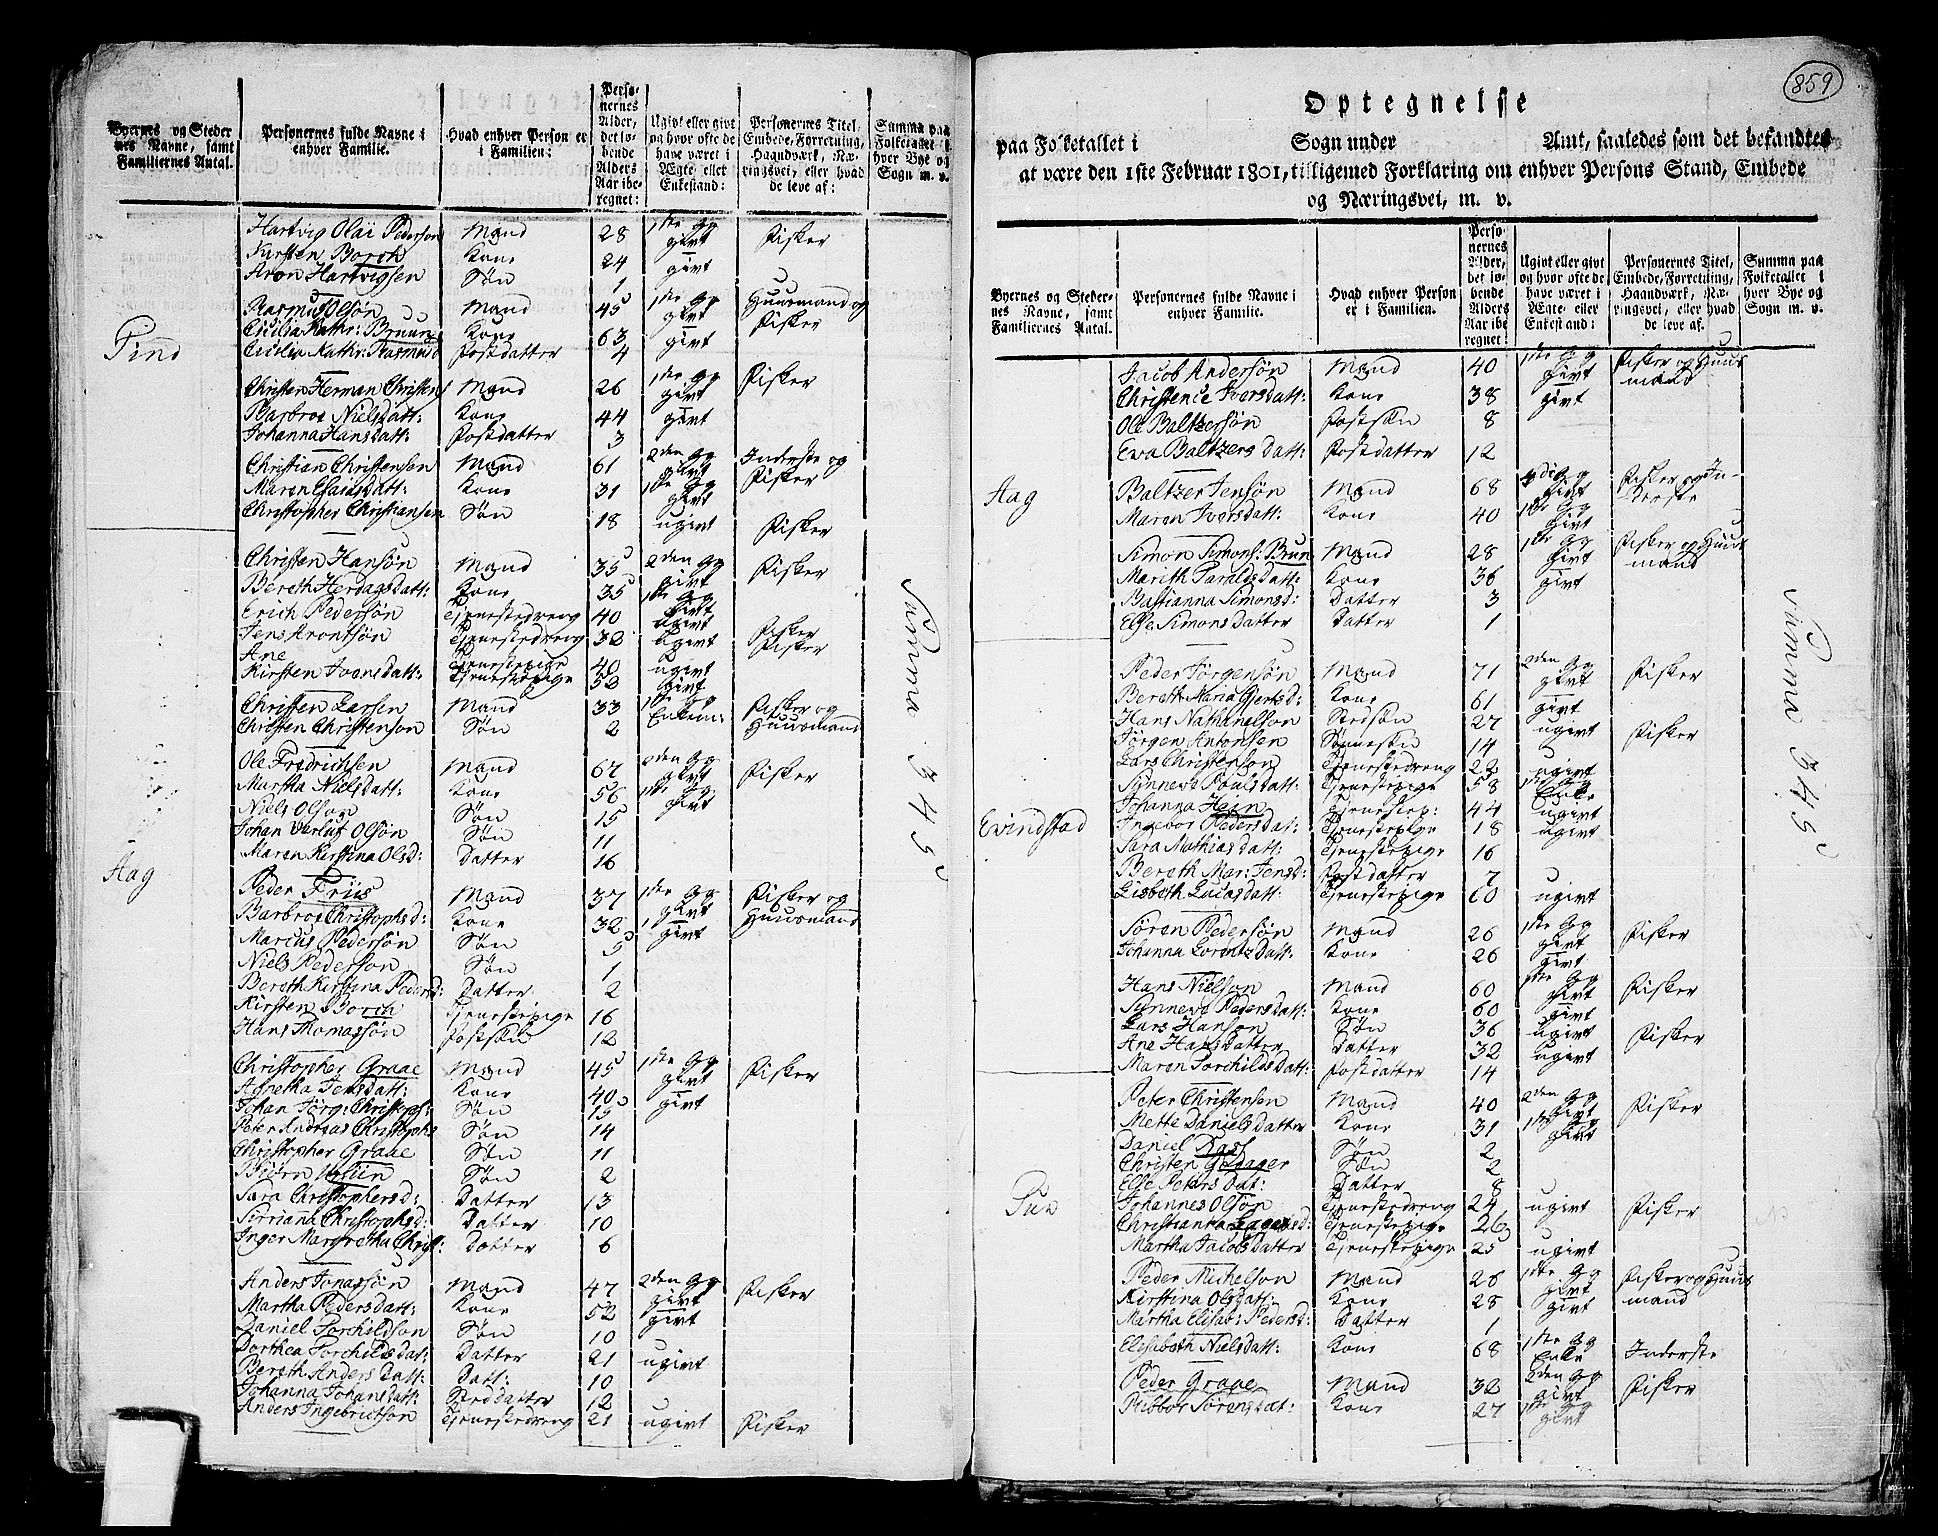 Byernes og Steder
nes Navne, samt
Familiernes Antal.
Personernes fulde Navne i
enhver Familie.
Hvad enhver Person er
i Familien:
Perso-
nernes
Alder,
det lø-
bende
Alders
Aar ibe-
regnet:
Ugivt eller givt
og hvor ofte de
have været i
Ægte eller
Enkestand:
Personernes Titel,
Embede, Forretning,
Haandværk, Næ-
ringsvei, eller hvad
de leve af:
Summa paa
Folketallet i
hver Bye og
Sogn m. v.
Hartvig Olai Pederson Mand 28 1ste Gg givt Fisker
Kirsten Borch Kone 24 givt
Aron Hartvigsen Søn 1
Rasmus Olsøn Mand 45 1ste Gg givt Huusmand og Fisker
Cicilia Kathr: Bruun Kone 63 givt
Cicilia Kathr: Rasmusd Postdatter 4
Tind
Christen Herman Christens Mand 26 1ste Gg givt Fisker
Barbroe Nielsdatt: Kone 44 givt
Johanna Hansdatt: Postdatter 3
Christian Christensen Mand 61 2den Gg givt Inderste og Fisker
Maren Esaiasdatt: Kone 31 1ste Gg givt
Christopher Christiansen Søn 18 ugivt Fisker
Christen Hansøn Mand 35 2den Gg givt Fisker
Bereth Herdagsdatt: Kone 35 1ste Gg givt
Erich Pedersøn Tjenestedreng 40 ugivt Fisker
Jens Arontsøn Tjenestedreng 38 ugivt Fisker
Ane Tjenestepige 40 ugivt
Kirsten Iversdatt: Tjenestepige 58 ugivt
Christen Larsen Mand 33 1ste Gg Enkem: Fisker og Huusmand
Christen Christenson Søn 2
Ole Fredrichsen Mand 67 2den Gg givt Fisker
Martha Nielsdatt: Kone 56 1ste Gg givt
Niels Olson Søn 15
Johan Olsøn Søn 11
Maren Kirstina Olsd: Datter 16
Aag
Peder Friis Mand 37 1ste Gg givt Fisker og Huusmand
Barbroe Christophsd: Kone 32 givt
Marcus Pedersøn Søn 5
Niels Pederson Søn 1
Bereth Kirstina Pedersd: Datter 2
Kirsten Borch Tjenestepige 16
Hans Thomassøn Postsøn 12
Christopher Graae Mand 45 1ste Gg givt Fisker
Agnetha Jensdatt: Kone 40 givt
Johan Jörg: Christophs: Søn 15
Peter Andreas Christophs Søn 14
Christopher Graae Søn 11
Biörn Søn 2
Sara Christophersd: Datter 13
Sirrianna Christophsd: Datter 10
Inger Margretha Christ: Datter 6
Anders Jonassøn Mand 47 2den Gg givt Fisker
Martha Pedersdatt: Kone 52 givt
Daniel Torchildson Søn 10
Dorthea Torchildsdat: Datter 21 ugivt
Bereth Anders Datt: Datt: 10
Johanna Johansdatt: Steddatter 12
Anders Ingebrictson Tjenestedreng 21 ugivt Fisker
Summa 345
859
Optegnelse
paa Folketallet i Sogn under Amt, saaledes som det befandtes
at være den 1ste Februar 1801, tilligemed Forklaring om enhver Persons Stand, Embede
og Næringsvei, m. v.
Byernes og Steder-
nes Navne, samt
Familiernes Antal.
Personernes fulde Navne i
enhver Familie.
Hvad enhver Person
er i Familien.
Perso-
nernes
Alder,
det lø-
bende
Alders
Aar ibe
regnet:
Ugivt eller givt
og hvor ofte de
have været i
Ægte eller
Enkestand:
Personernes Titel,
Embede, Forretning,
Haandværk, Næ-
ringsvei, eller hvad
de leve af.
Summa paa
Folketallet i
hver Bye og
Sogn m. v.
Jacob Andersøn Mand 40 1ste Gg givt Fisker og Huusmand
Christence Iversdatt: Kone 38 givt
Ole Baltzersøn Postsøn 8
Eva Baltzers Datt: Postdatter 12
Aag
Baltzer Jensøn Mand 68 Gg givt Fisker og Inderste
Maren Iversdatt: Kone 40 1ste Gg givt
Simon Simons: Brun Mand 28 1ste Gg givt Fisker og Huusmand
Marith Taraldsdatt: Kone 36 givt
Bastianna Simonsd: Datter 3
Else Simons Datter Datter 1
Peder Jörgensøn Mand 71 2den Gg givt Fisker
Bereth Maria Gjertsd: Kone 61 givt
Hans Nathanelson Stedsøn 27 ugivt Fisker
Jörgen Antonsen Sønnesøn 14
Lars Christenson Tjenestedreng 22 ugivt
Sÿnneve Poulsdatt: Tjenestepige 58 1ste Gg Enke
Johanna Hein Tjenestep: 44 ugivt
Evindstad
Ingebor Pedersdat: Tjenestepige 18 ugivt
Sara Mathiasdatt: Tjenestepige 16
Bereth Mar: Jensd: Postdatter 7
Lisbeth Lucasdatt: Tjenestepige 60 ugivt
Sören Pedersøn Mand 26 1ste Gg givt Fisker
Johanna Lorentzdatt: Kone 26 givt
Hans Nielson Mand 60 1ste Gg givt Fisker
Sÿnneve Pedersdatt: Kone 60 givt
Lars Hanson Søn 36 ugivt Fisker
Ane Hansdatter Datter 32 ugivt
Maren Torchildsdatt: Postdatter 14
Peter Christensen Mand 40 2den Gg givt Fisker
Mette Daniels Datter Kone 31 1ste Gg givt
Daniel Dass Søn 2
Christen Godager Søn 2
Else Peters Dat: Datter 8
Johannes Olsøn Tjenestedreng 24 ugivt Fisker
Christianna Tjenestepige 26
Martha Jacobsdatter Tjenestepige 25 ugivt
Peder Michelson Mand 26 1ste Gg givt Fisker og Huusmand
Kirstina Olsdatt: Kone 28 givt
Martha Elisab: Pedersd: Datter 1
Elisabeth Nielsdatt: Kone 68 1ste Gg Enke Inderste
Peder Graae Mand 32 2den Gg givt Fisker
Ribbor Sörensdat: Kone 27 1ste Gg givt
Summa 345